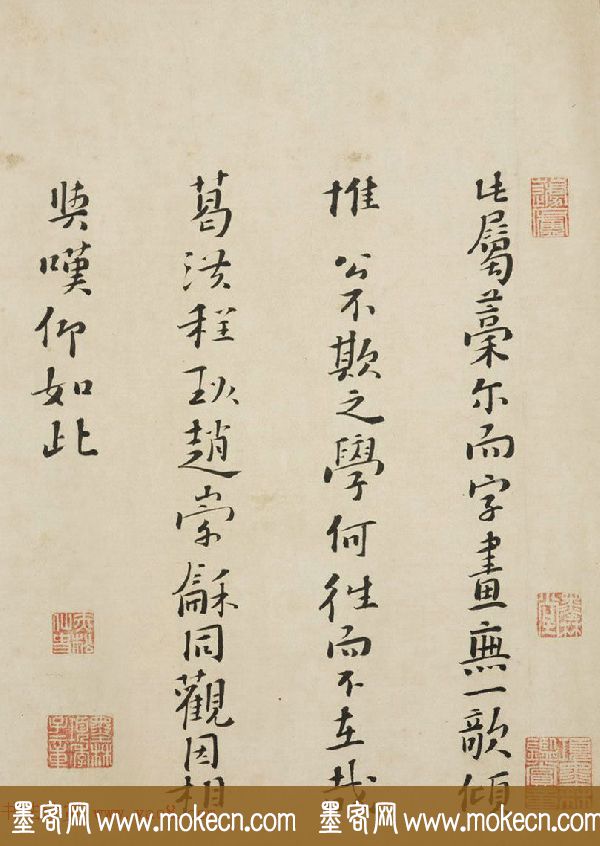 此屬藁尔而字畫無一欹傾
惟公不欺之學何徃而不在哉
葛洪程珌趙崇龢同觀因相
與嘆仰如此
墨客网 www.mokecn.com 墨客网 www.mokecn.com